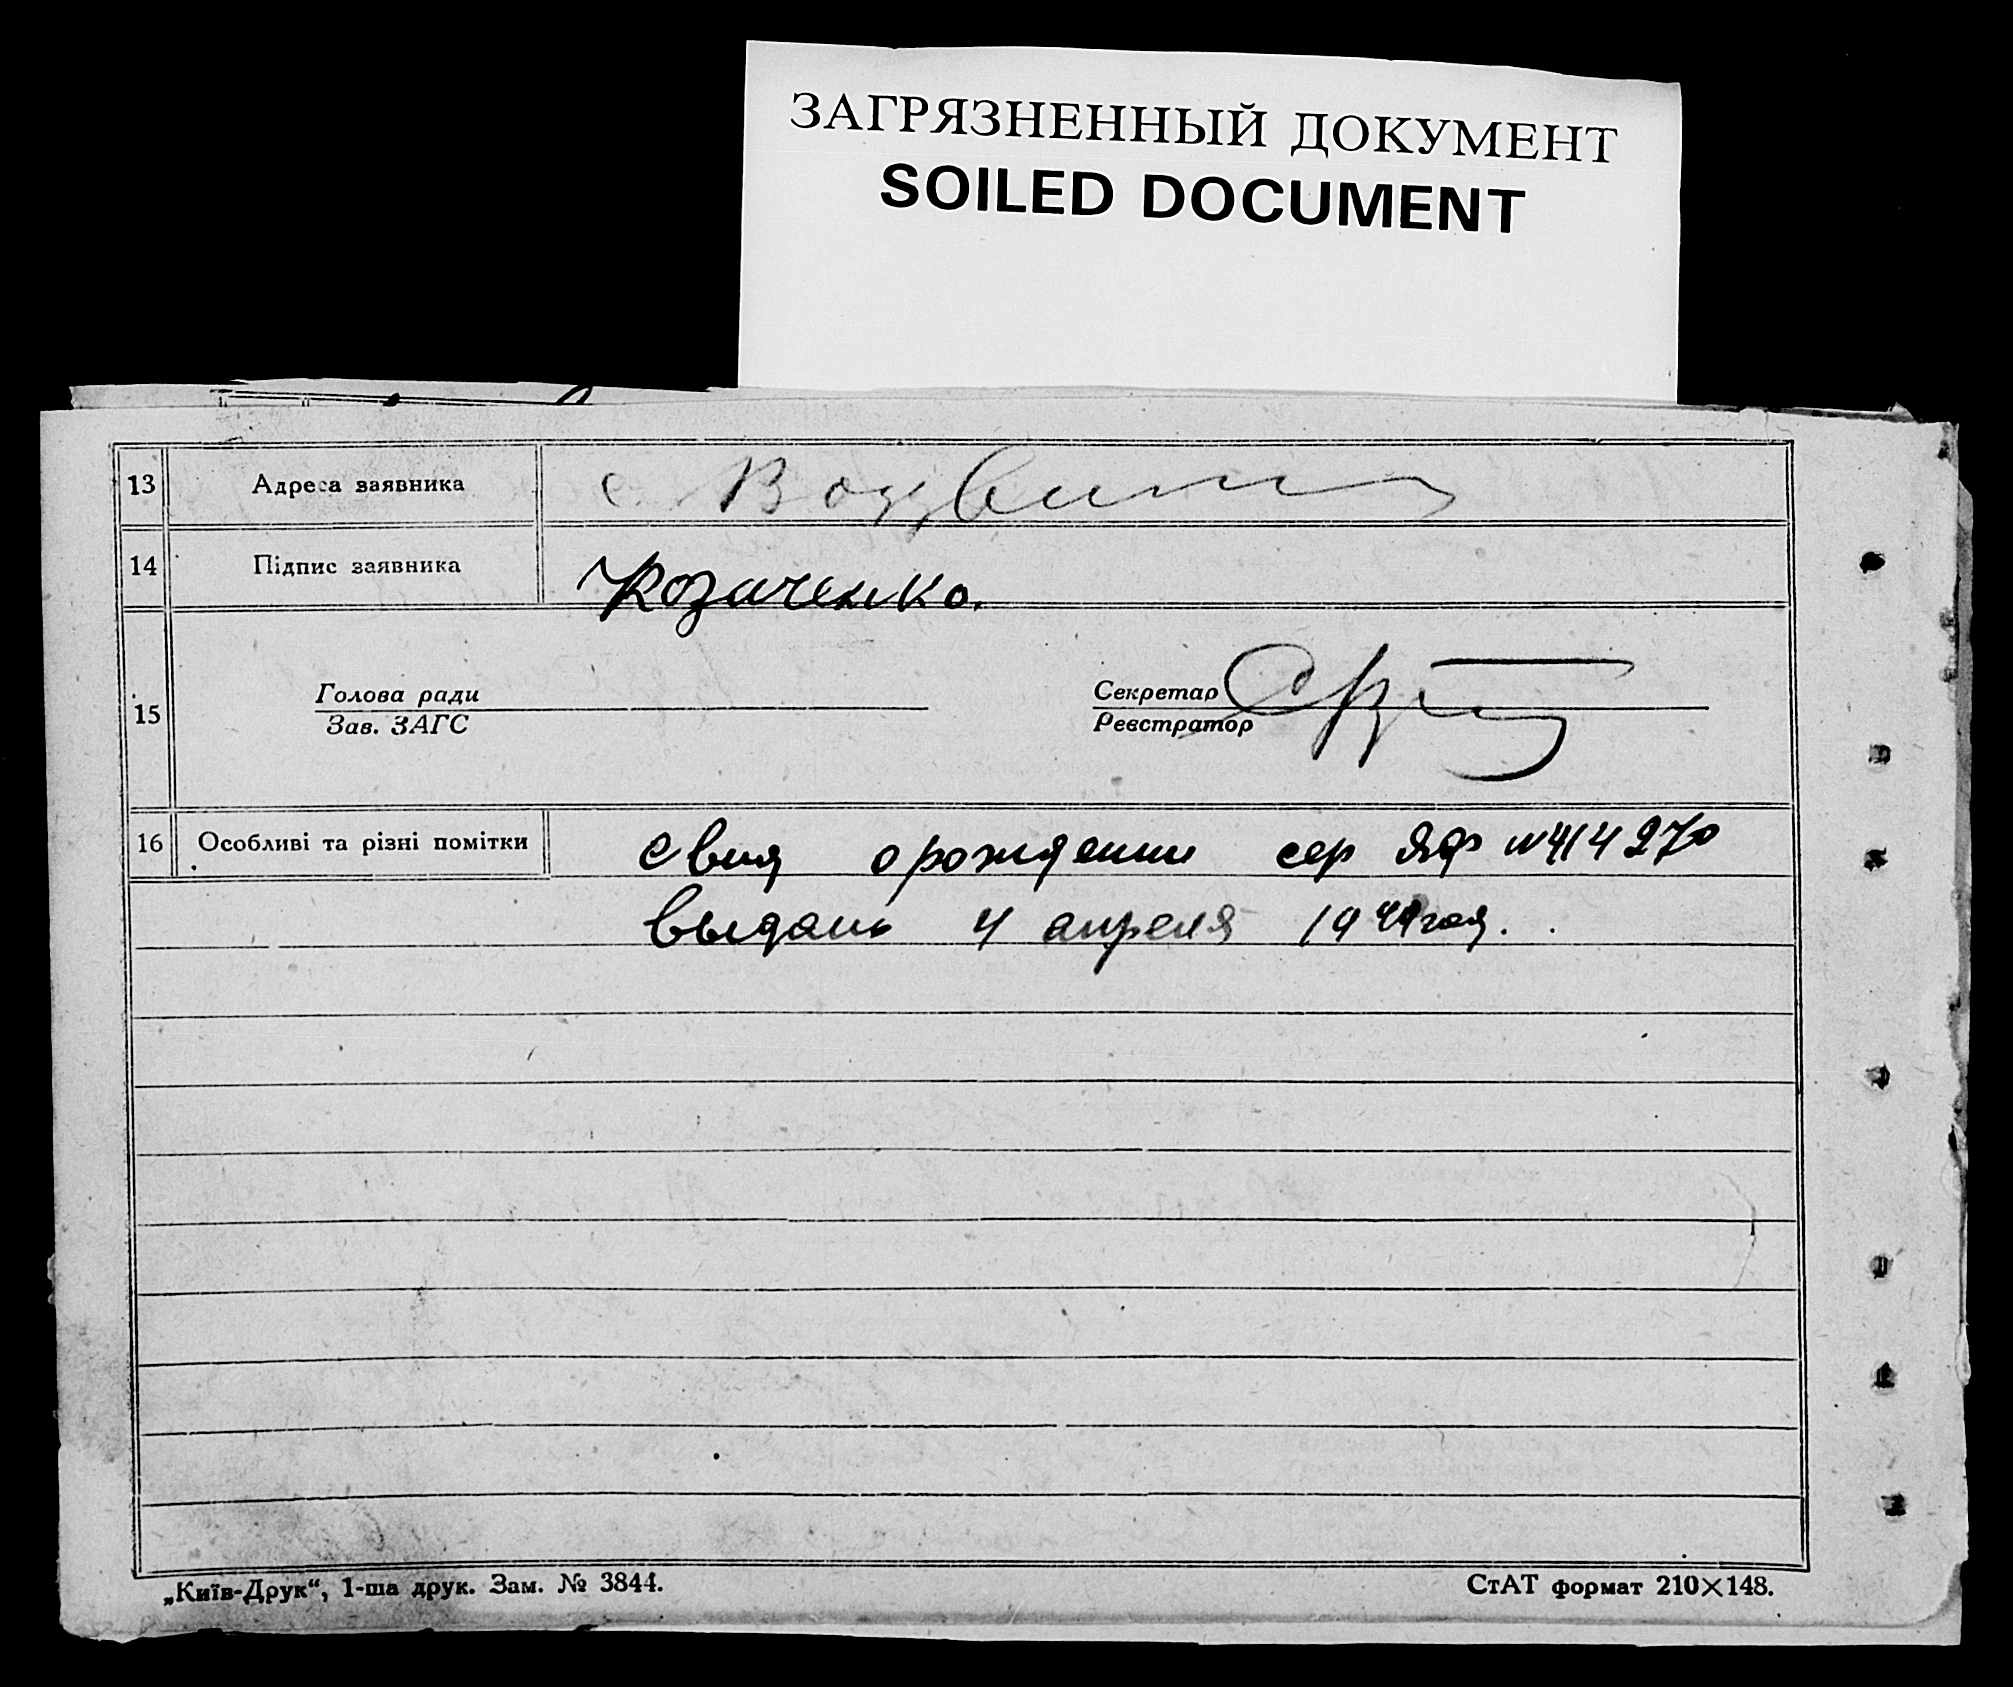 ЗАГРЯЗНЕННЫЙ ДОКУМЕНТ
SOILED DOCUMENT
13 Адреса заявника с.
14 Підпис заявника Козаченко.
15
Голова ради Секретар
Зав. ЗАГС Реєстратор
16 Особливі та різні помітки свид о рождении сер ЯФ №414270
выдано 4 апреля 1949 год.
„Київ-Друк“, 1-ша друк. Зам. № 3844. СтАТ формат 210×148.